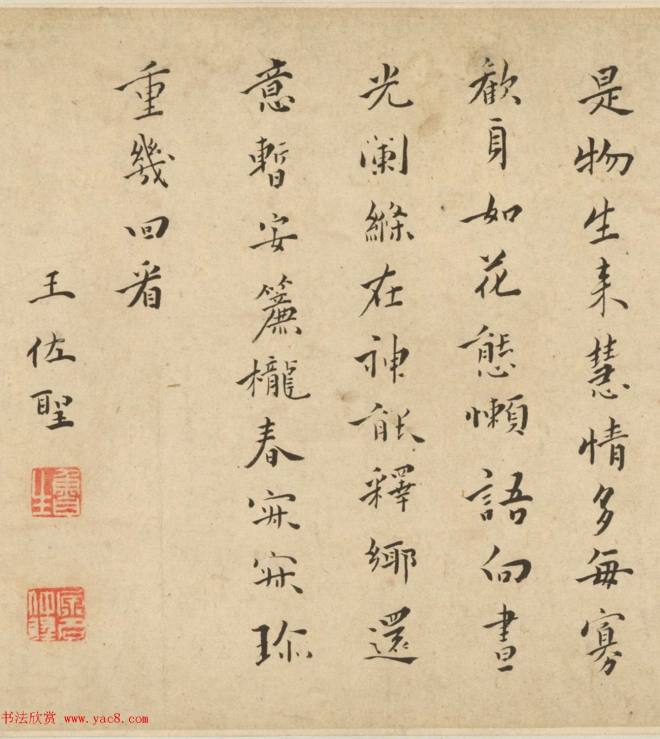 是物生来慧情多每寡
歡身如花態懶語向晝
光闌絛在神能釋鄉還
意暫安簾櫳春寂寂珎
重幾回看
王佐聖
书法欣赏 www.yac8.com